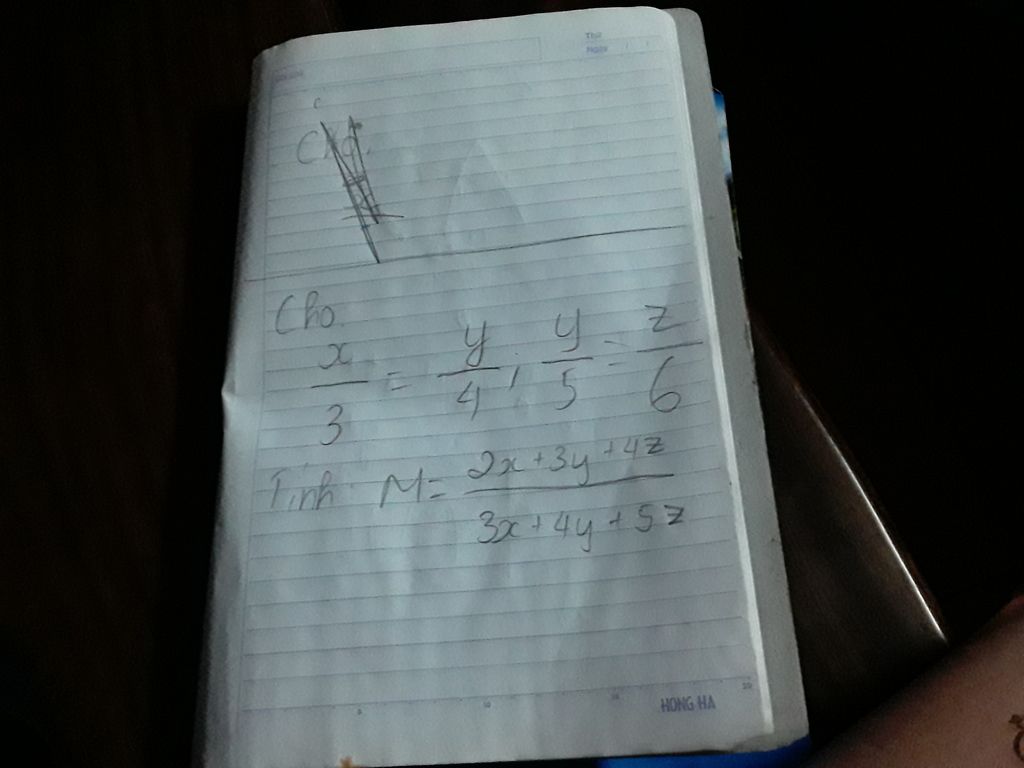 Thứ
Ngày
Cho.
Cho.
x/3 = y/4 ; y/5 = z/6
Tính M = (2x + 3y + 4z)/(3x + 4y + 5z)
5 10 15 20
HONG HA